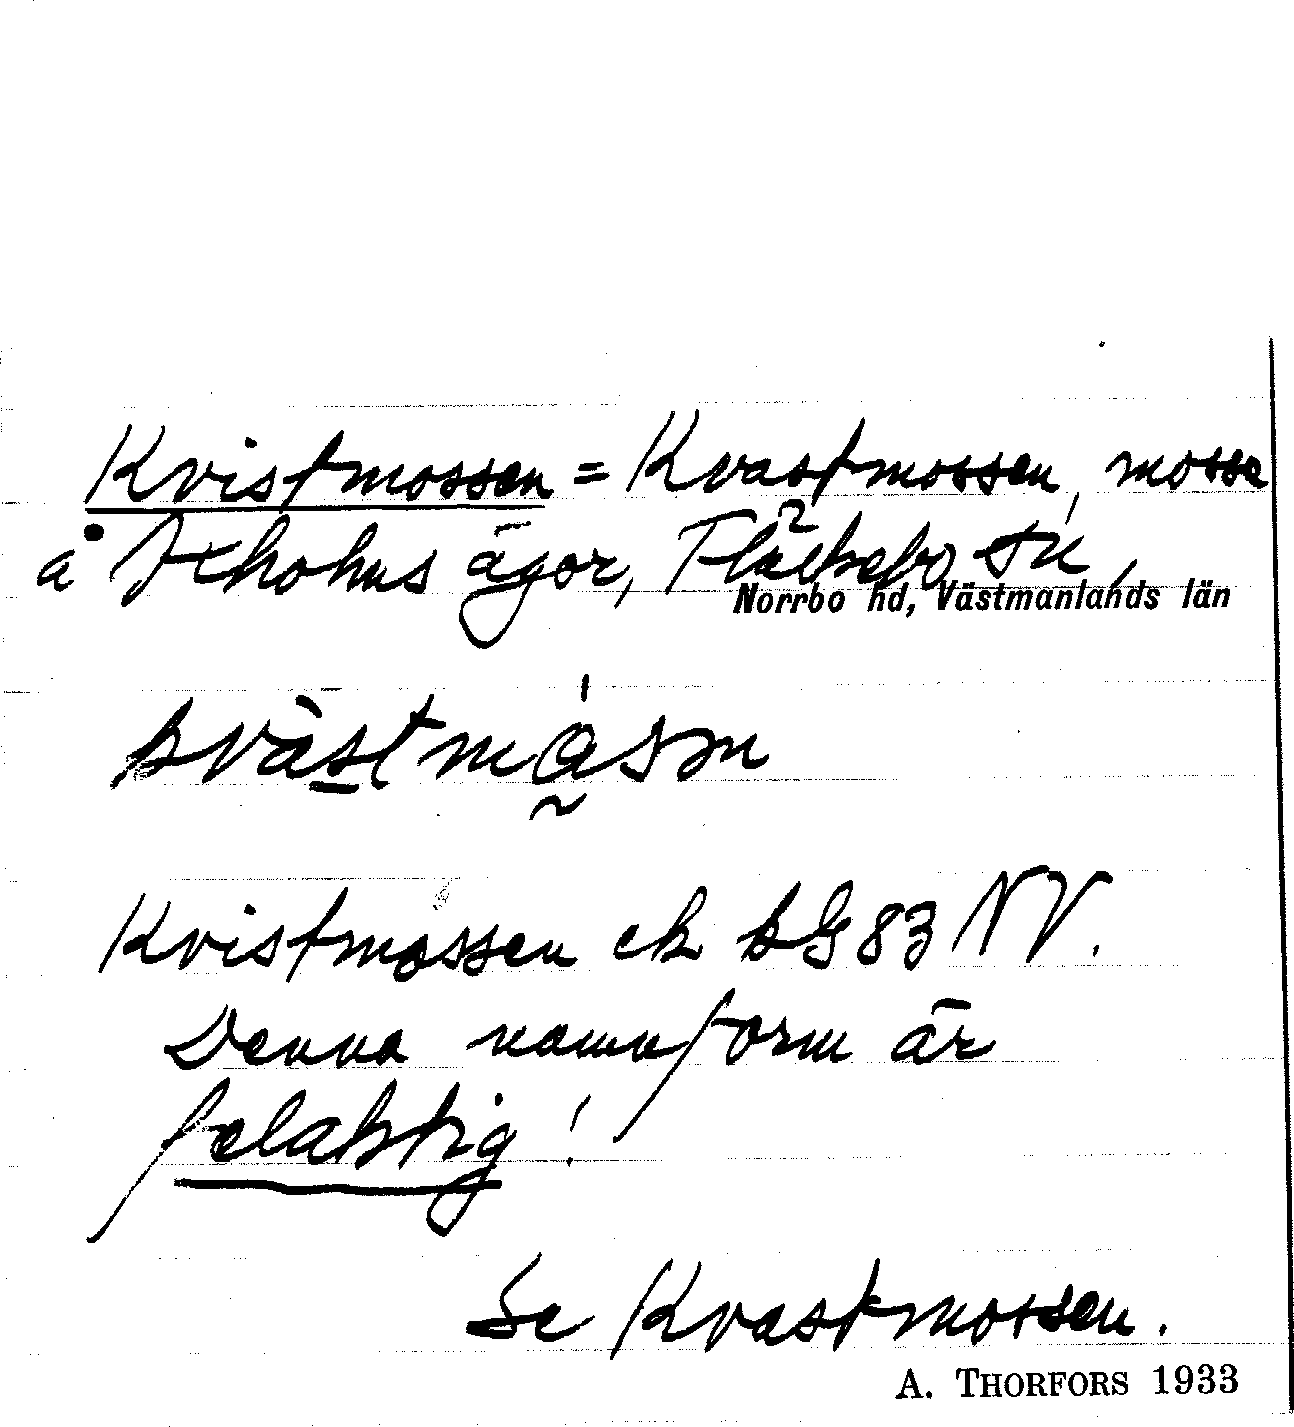 Kvistmossen = Kvastmossen, mosse
å ägor, Fläckebo sn,
Norrbo hd, Västmanlands län
Kvistmossen ek bG 83 NV.
Denna namnform är
felaktig!
Se Kvastmossen.
A. THORFORS 1933